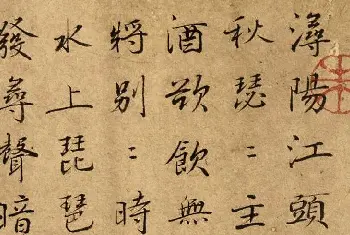 潯陽江頭
秋瑟〻主
酒欲飲無
將別〻時
水上琵琶
發尋聲暗